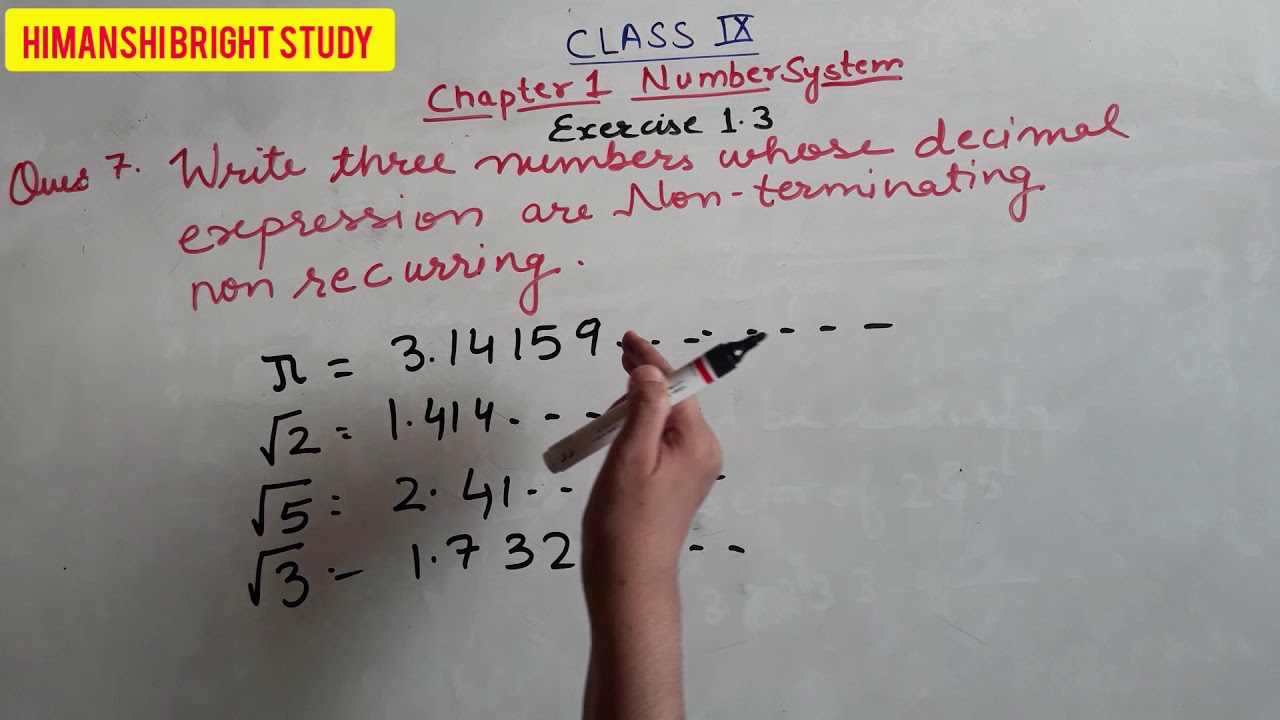 HIMANSHI BRIGHT STUDY
CLASS IX
Chapter 1 Number System
Exercise 1.3
Ques 7. Write three numbers whose decimal
expression are Non-terminating
non recurring.
π = 3.14159. - - - - - -
√2 = 1.414. - - -
√5 = 2.41 - - -
√3 = 1.732 - -